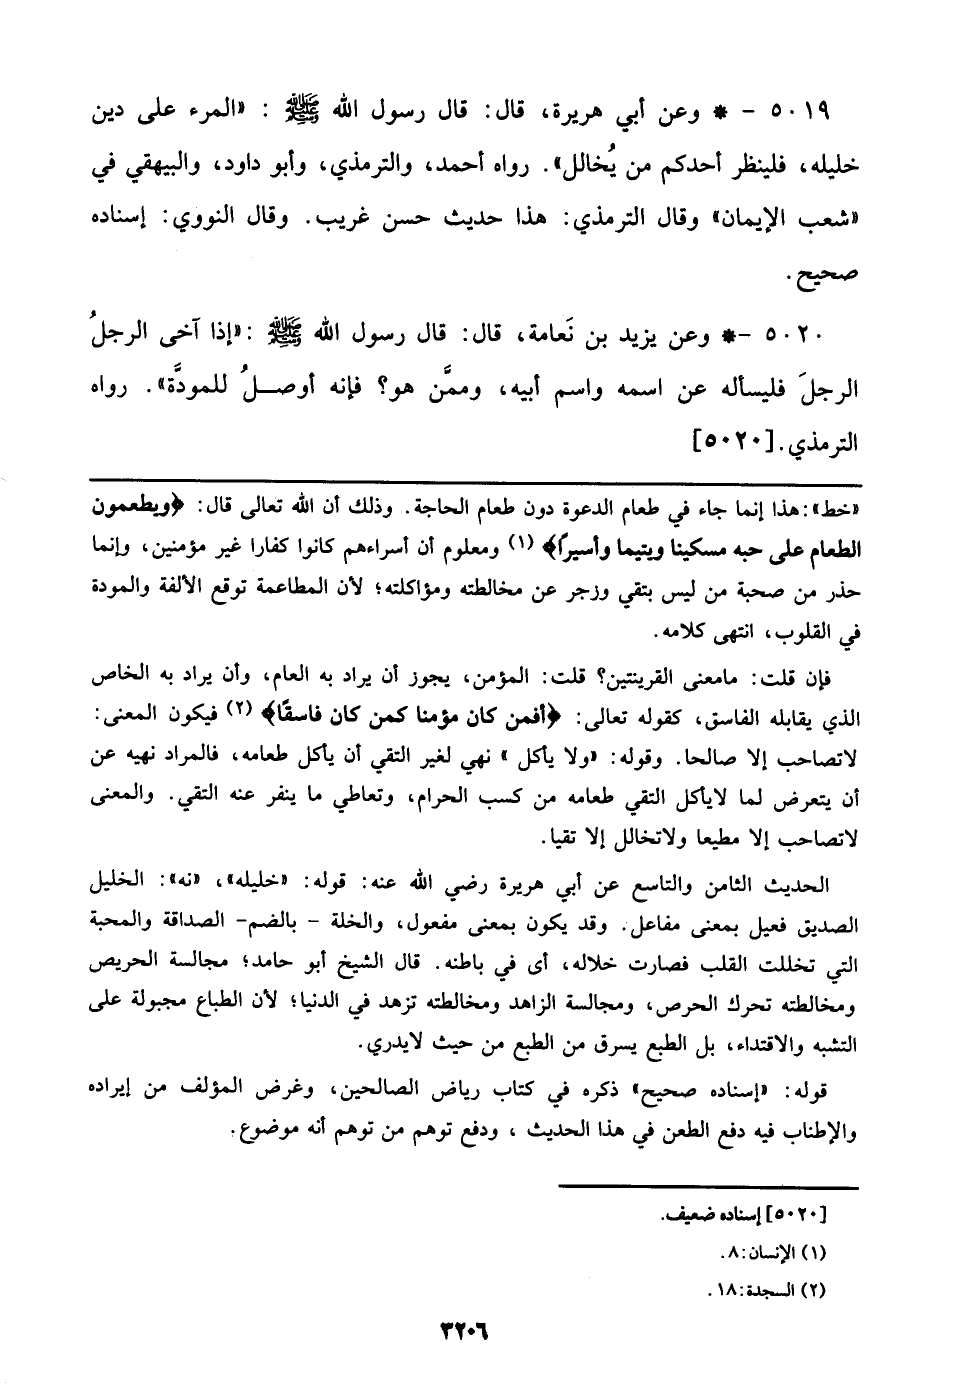 ٥٠١٩ - * وعن أبي هريرة، قال: قال رسول الله ﷺ : «المرء على دين
خليله، فلينظر أحدكم من يُخالل». رواه أحمد، والترمذي، وأبو داود، والبيهقي في
«شعب الإيمان» وقال الترمذي: هذا حديث حسن غريب. وقال النووي: إسناده
صحيح.
٥٠٢٠ -* وعن يزيد بن نَعامة، قال: قال رسول الله ﷺ :«إذا آخى الرجلُ
الرجلَ فليسأله عن اسمه واسم أبيه، وممَّن هو؟ فإنه أوصـلُ للمودَّة». رواه
الترمذي.[٥٠٢٠]
«خط»:هذا إنما جاء في طعام الدعوة دون طعام الحاجة. وذلك أن الله تعالى قال: ﴿ويطعمون
الطعام على حبه مسكينا ويتيما وأسيرًا﴾ (١) ومعلوم أن أسراءهم كانوا كفارا غير مؤمنين، وإنما
حذر من صحبة من ليس بتقي وزجر عن مخالطته ومؤاكلته؛ لأن المطاعمة توقع الألفة والمودة
في القلوب، انتهى كلامه.
فإن قلت: مامعنى القرينتين؟ قلت: المؤمن، يجوز أن يراد به العام، وأن يراد به الخاص
الذي يقابله الفاسق، كقوله تعالى: ﴿أفمن كان مؤمنا كمن كان فاسقًا﴾ (٢) فيكون المعنى:
لاتصاحب إلا صالحا. وقوله: «ولا يأكل » نهي لغير التقي أن يأكل طعامه، فالمراد نهيه عن
أن يتعرض لما لايأكل التقي طعامه من كسب الحرام، وتعاطي ما ينفر عنه التقي. والمعنى
لاتصاحب إلا مطيعا ولاتخالل إلا تقيا.
الحديث الثامن والتاسع عن أبي هريرة رضي الله عنه: قوله: «خليله»، «نه»: الخليل
الصديق فعيل بمعنى مفاعل. وقد يكون بمعنى مفعول، والخلة - بالضم- الصداقة والمحبة
التي تخللت القلب فصارت خلاله، أى في باطنه. قال الشيخ أبو حامد؛ مجالسة الحريص
ومخالطته تحرك الحرص، ومجالسة الزاهد ومخالطته تزهد في الدنيا؛ لأن الطباع مجبولة على
التشبه والاقتداء، بل الطبع يسرق من الطبع من حيث لايدري.
قوله: «إسناده صحيح» ذكره في كتاب رياض الصالحين، وغرض المؤلف من إيراده
والإطناب فيه دفع الطعن في هذا الحديث ، ودفع توهم من توهم أنه موضوع.
[٥٠٢٠] إسناده ضعيف.
(١) الإنسان:٨.
(٢) السجدة:١٨.
٣٢٠٦